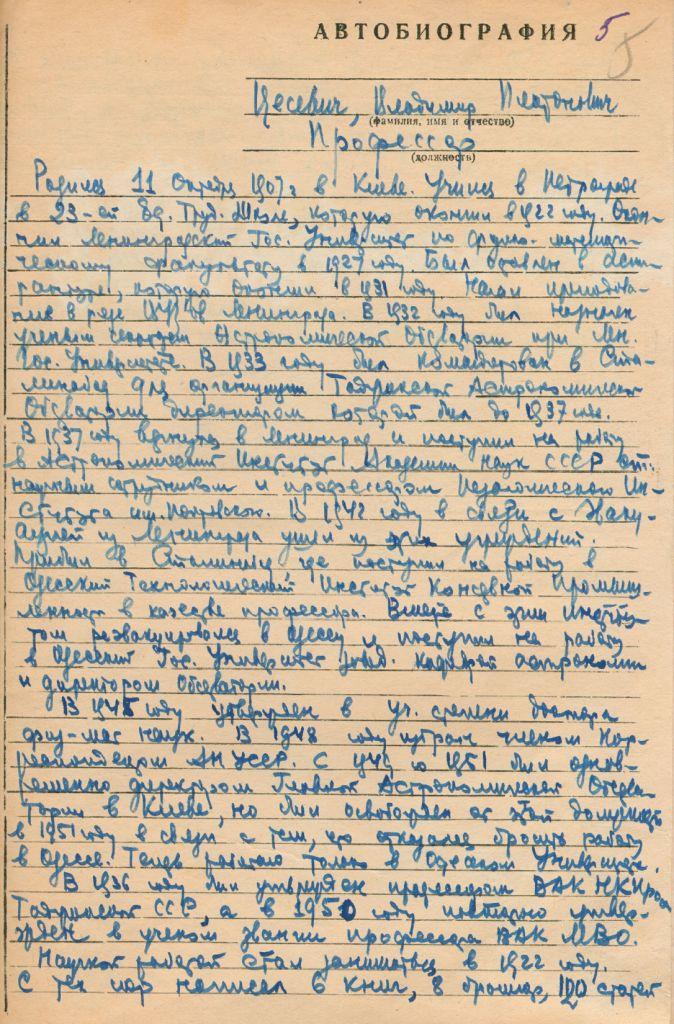 АВТОБИОГРАФИЯ 5
5
Цесевич, Владимир Платонович
(фамилия, имя и отчество)
Профессор
(должность)
Родился 11 Октября 1907 г в Киеве. Учился в Петрограде
в 23-ей Ед. Труд. Школе, которую окончил в 1922 году. Окон-
чил Ленинградский Гос. Университет по физико-математи-
ческому факультету в 1927 году. Был оставлен в аспи-
рантуре, которую окончил в 1931 году. Начал преподава-
ние в ряде ВУЗ'ов Ленинграда. В 1932 году был назначен
ученым секретарем Астрономической Обсерватории при Лен.
Гос. Университете. В 1933 году был командирован в Ста-
линабад для организации Таджикской Астрономической
Обсерватории директором которой был до 1937 года.
В 1937 году вернулся в Ленинград и поступил на работу
в Астрономический Институт Академии Наук СССР ст.
научным сотрудником и профессором Педагогического Ин-
ститута им. Покровского. В 1942 году в связи с Эваку-
ацией из Ленинграда ушел из этих учреждений.
Прибыл в Сталинабад где поступил на работу в
Одесский Технологический Институт Консервной Промыш-
ленности в качестве профессора. Вместе с этим Институ-
том реэвакуировался в Одессу и поступил на работу
в Одесский Гос. Университет завед. кафедрой астрономии
и директором Обсерватории.
В 1945 году утвержден в уч. степени доктора
физ-мат наук. В 1948 году избран членом Кор-
респондентом АН УССР. С 1948 по 1951 был однов-
ременно директором Главной Астрономической Обсерва-
тории в Киеве, но был освобожден от этой должности
в 1951 году в связи с тем, что отказался бросить работу
в Одессе. Теперь работаю только в Одесском Университете.
В 1936 году был утвержден профессором ВАК НКПрос
Таджикской ССР, а в 1950 году повторно утвер-
жден в ученом звании профессора ВАК МВО.
Научной работой стал заниматься в 1922 году.
С тех пор написал 6 книг, 8 брошюр, 120 статей